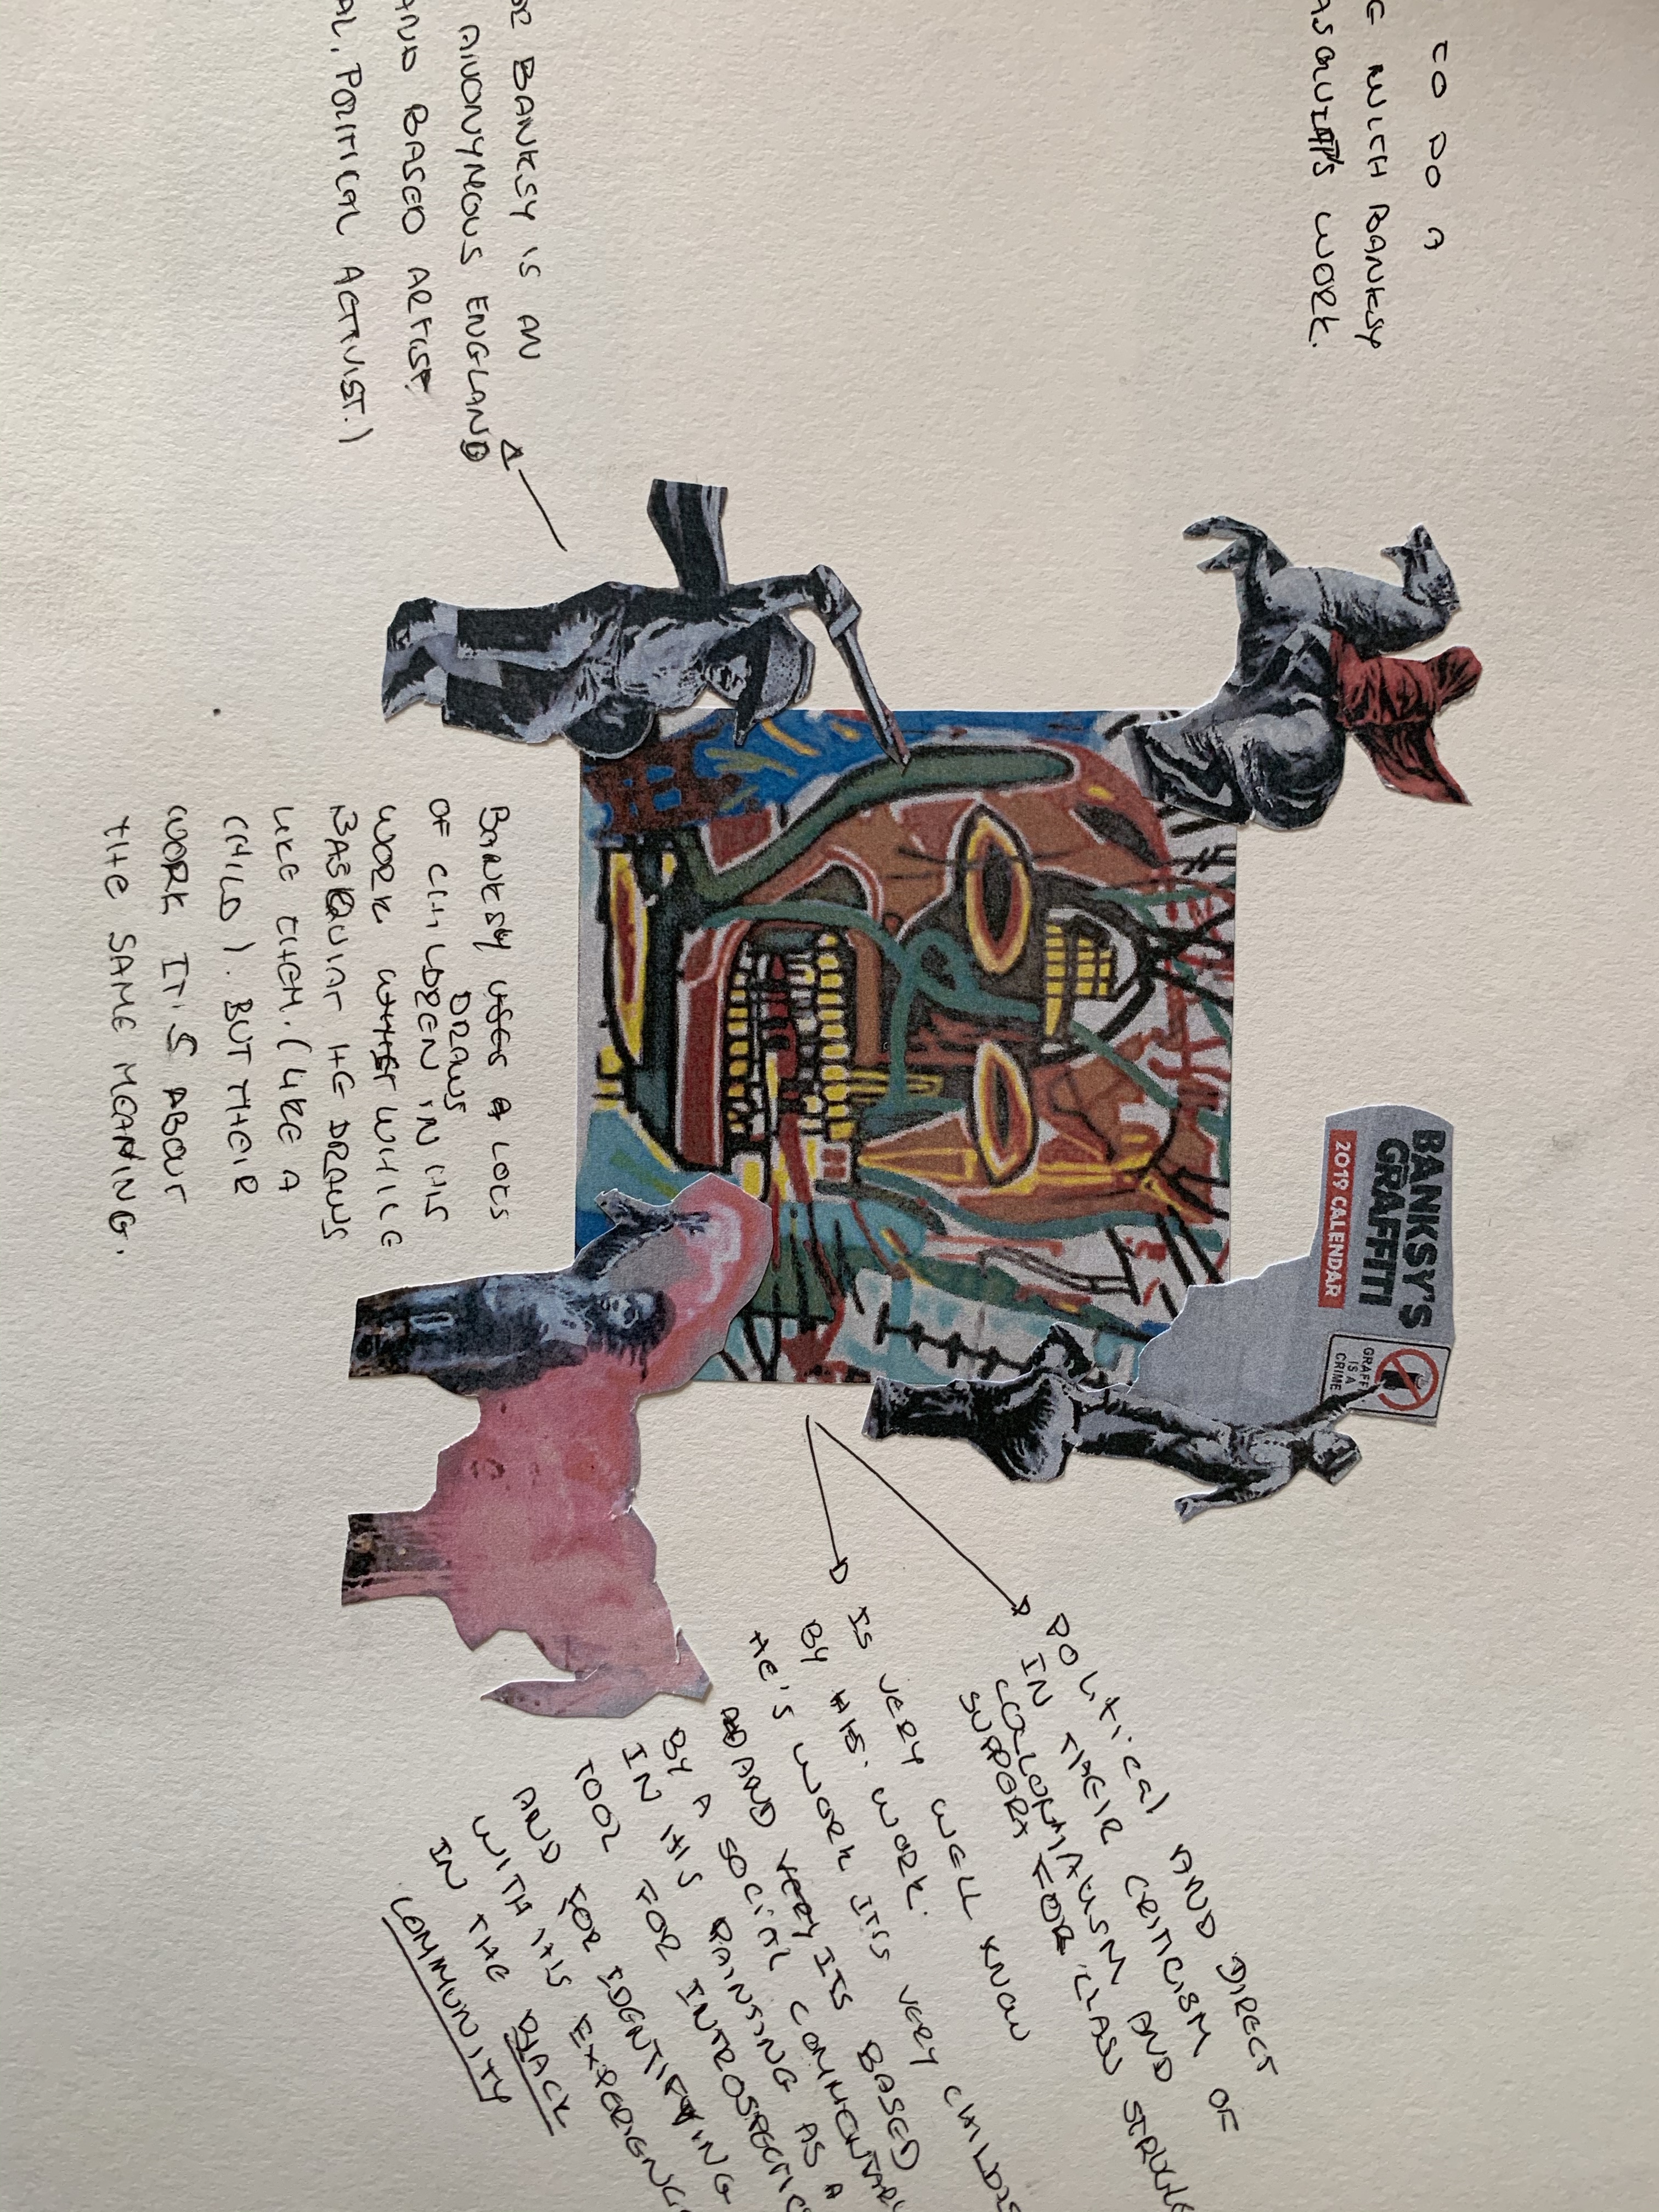 TO DO A
WITH BANKSY
ASQUIAT'S WORK.
BANKSY'S
GRAFFITI
2019 CALENDAR
GRAFF
IS A
CRIME
POLITICAL AND DIRECT
IN THEIR CRITICISM OF
COLLONTIALISM AND
SUPPORT FOR CLASS
IS VERY WELL KNOW
BY HIS WORK.
HE'S WORK ITS VERY
AND VERY ITS BASED
BY A SOCIAL
IN HIS PAINSING AS A
TOOL FOR
AND FOR
WITH HIS
IN THE BLACK
COMMUNITY
BANKSY IS AN
ANONYMEOUS ENGLAND
AND BASED ARTIST
AL, POLITICAL ACTIVIST.)
BANKSY USES A LOTS
OF CHILDREN DRAWS IN HIS
WORK WHILE
BASQUIAT HE DRAWS
LIKE THEM. (LIKE A
CHILD). BUT THEIR
WORK IT'S ABOUT
THE SAME MEANING.